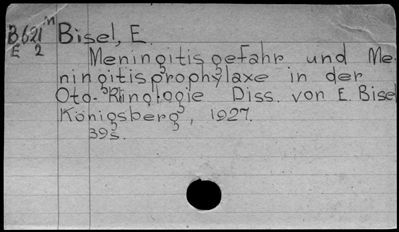 B621 in Bisel, E.
E 2
Meningitisgefahr und Me-
ningitisprophylaxe in der
Oto-Rinologie Diss. von E. Bisel
Königsberg, 1927.
39s.